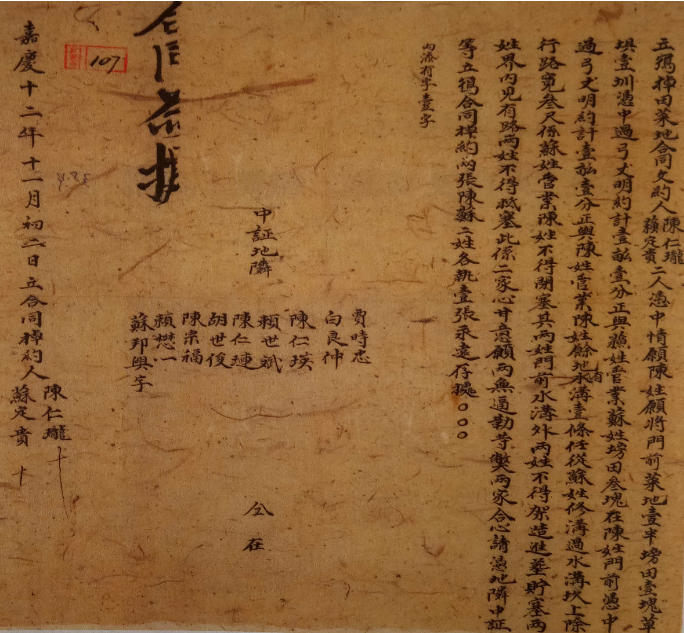 立掉田菜地合同文約人陳仁瓏蘇定貴二人憑中情願陳姓願將門前菜地壹半塝田壹塊草
垻壹圳憑中過弓丈明約計壹畝壹分正與蘇姓管業蘇姓塝田叁塊在陳姓門前憑中
過弓丈明約計壹畝壹分正與陳姓管業陳姓餘地有水溝壹條任從蘇姓修溝過水溝坎上除
行路寬叁尺係蘇姓管業陳姓不得閉塞其両姓門前水溝外両姓不得架造進並貯塞両
姓界内見有路両姓不得抵塞此係二家心甘意願両無逼勒等獘両家合心請憑地隣中証
等立合同掉約両張陳蘇二姓各執壹張永遠存據○○○
内添有字壹字
中証地隣
賈時忠
白良仲
陳仁瑛
賴世斌
陳仁璉
胡世俊
陳宗福
賴懋一
蘇邦興字
仝在
107
嘉慶十二年十一月初二日立合同掉約人陳仁瓏十
蘇定貴十